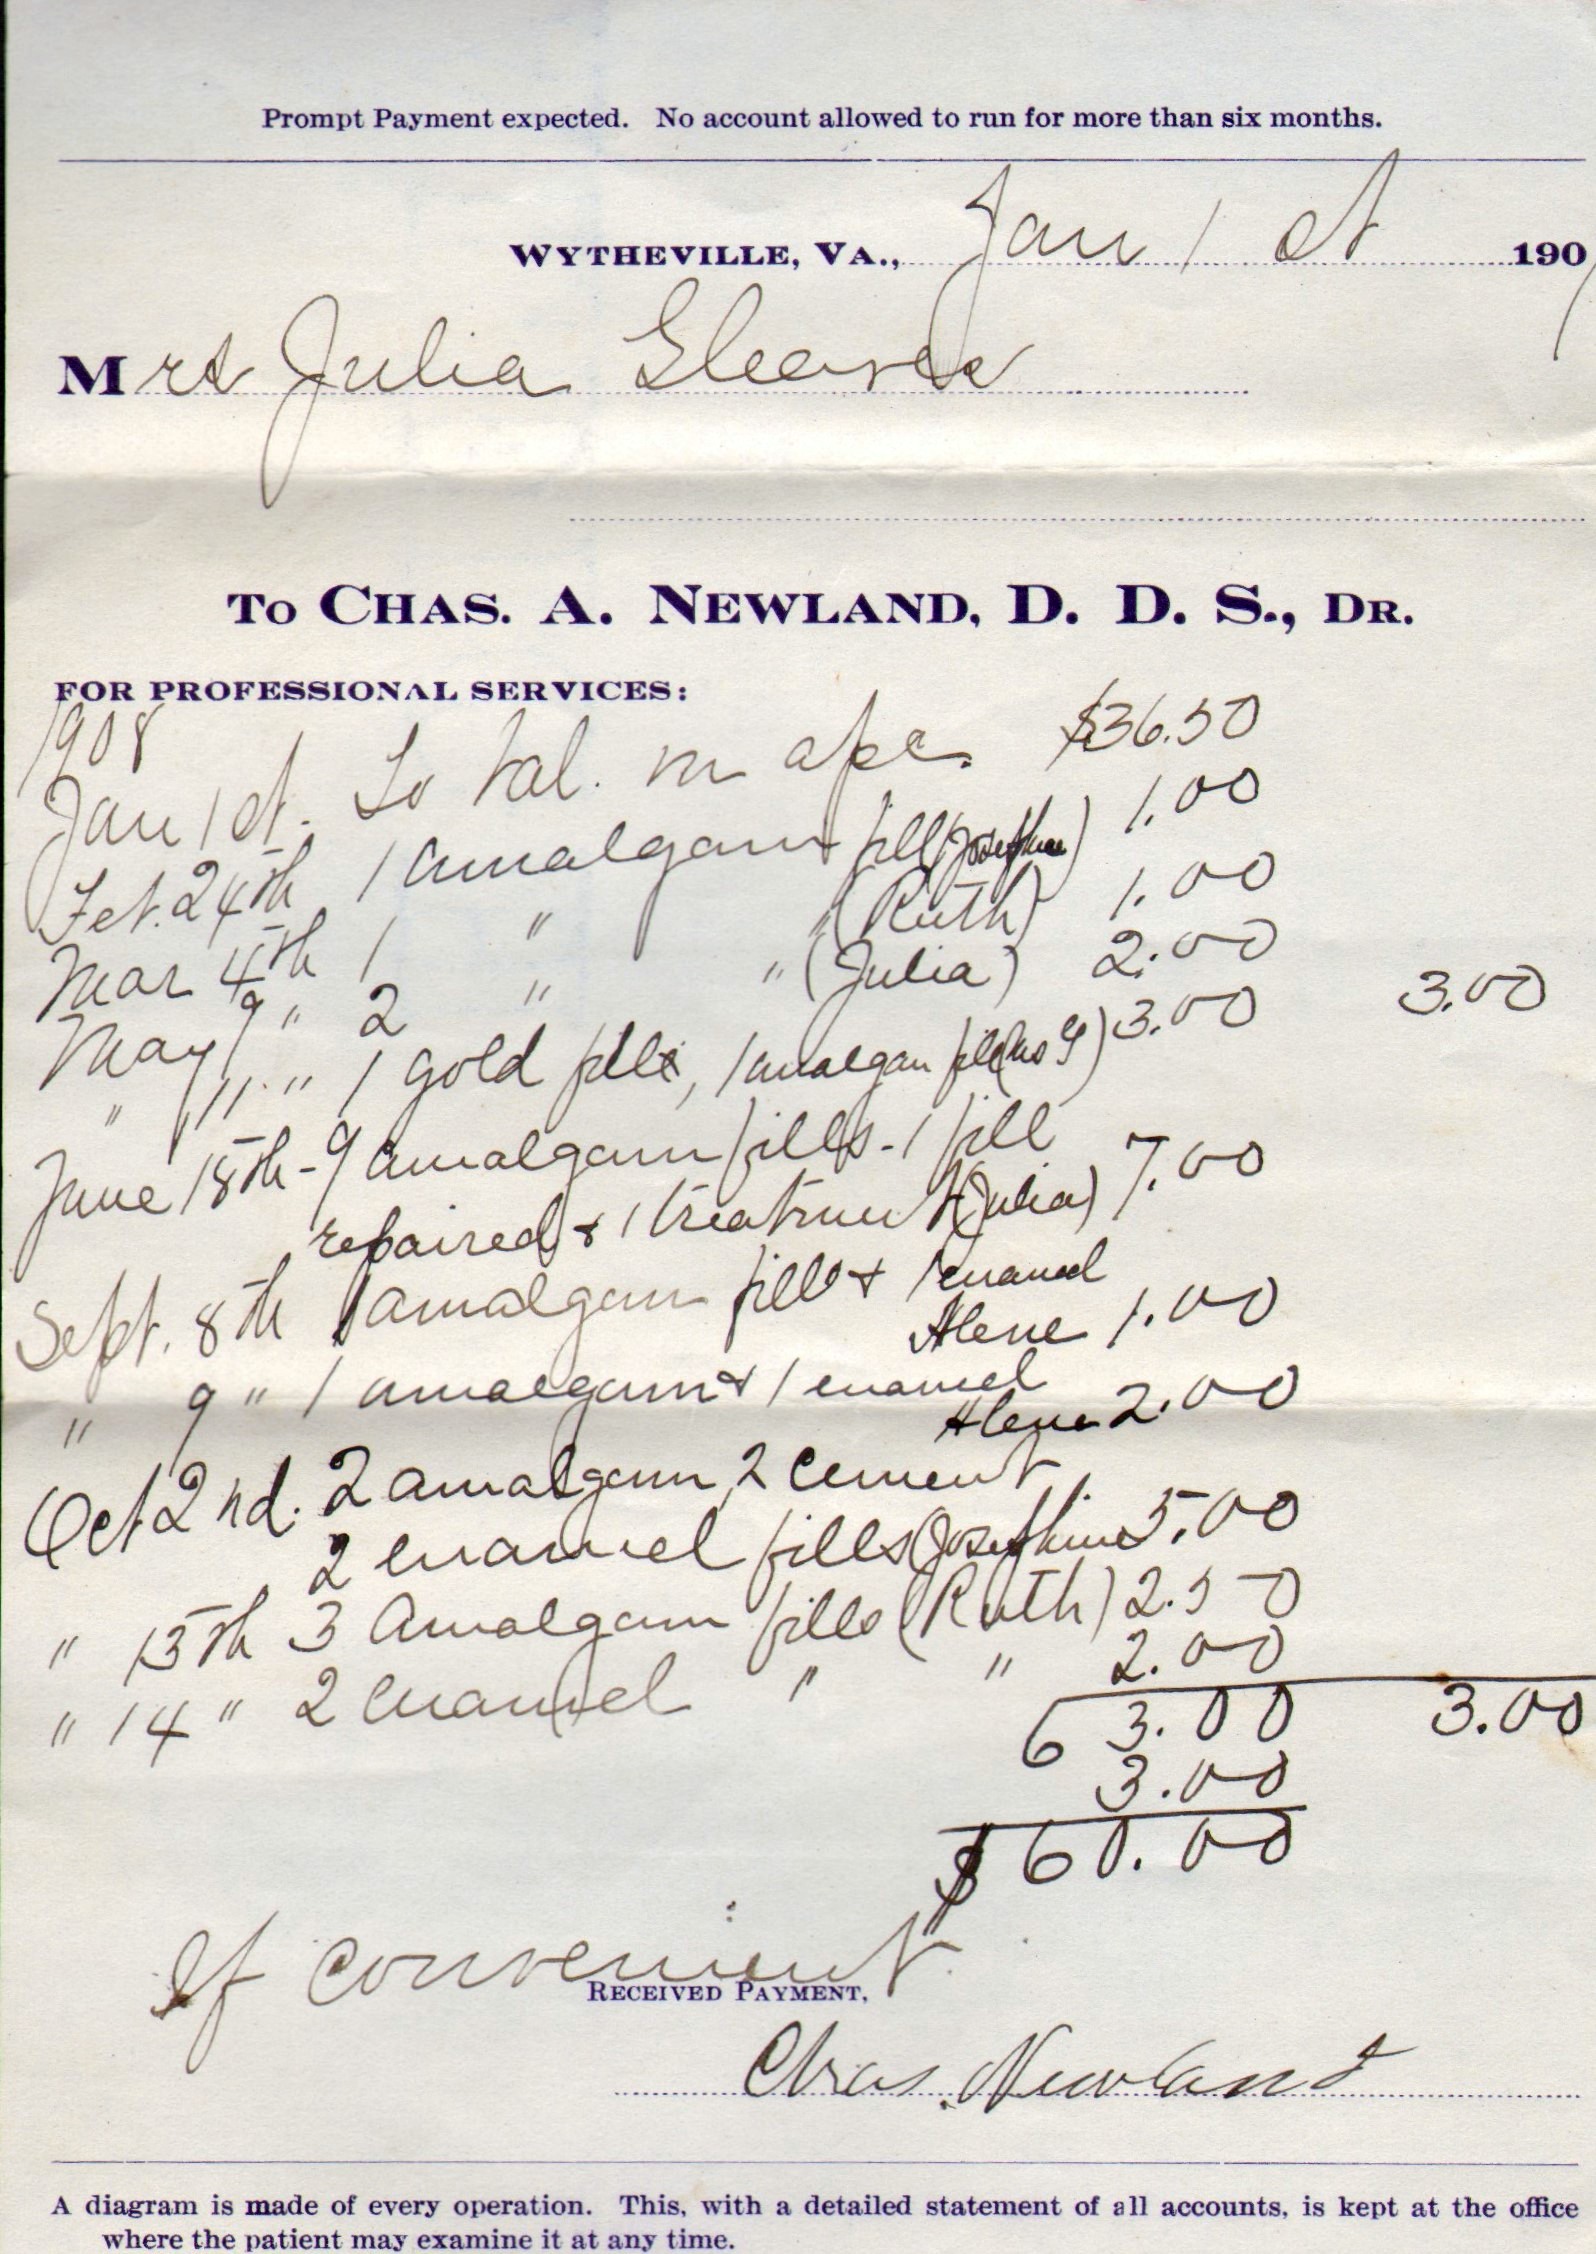 Prompt Payment expected. No account allowed to run for more than six months.
WYTHEVILLE, VA., Jan 1st 190
Mrs Julia Gleaves
TO CHAS. A. NEWLAND, D. D. S., DR.
FOR PROFESSIONAL SERVICES:
1908
Jan 1st. To bal. on a/c. $36.50
Feb. 24th 1 amalgam fill (Josephine) 1.00
Mar 4th 1 " " (Ruth) 1.00
May 9 " 2 " " (Julia) 2.00
" 11 " 1 gold fill, 1 amalgam fill 3.00 3.00
June 18th - 9 amalgam fills - 1 fill
repaired & 1 treatment (Julia) 7.00
Sept. 8th 1 amalgam fill & 1 enamel
Alene 1.00
" 9 " 1 amalgam & 1 enamel
Alene 2.00
Oct 2nd. 2 amalgam, 2 cement
2 enamel fills (Josephine 5.00
" 13th 3 Amalgam fills (Ruth) 2.50
" 14 " 2 enamel " " 2.00
63.00 3.00
3.00
$60.00
If convenient
RECEIVED PAYMENT,
Chas. Newland
A diagram is made of every operation. This, with a detailed statement of all accounts, is kept at the office
where the patient may examine it at any time.